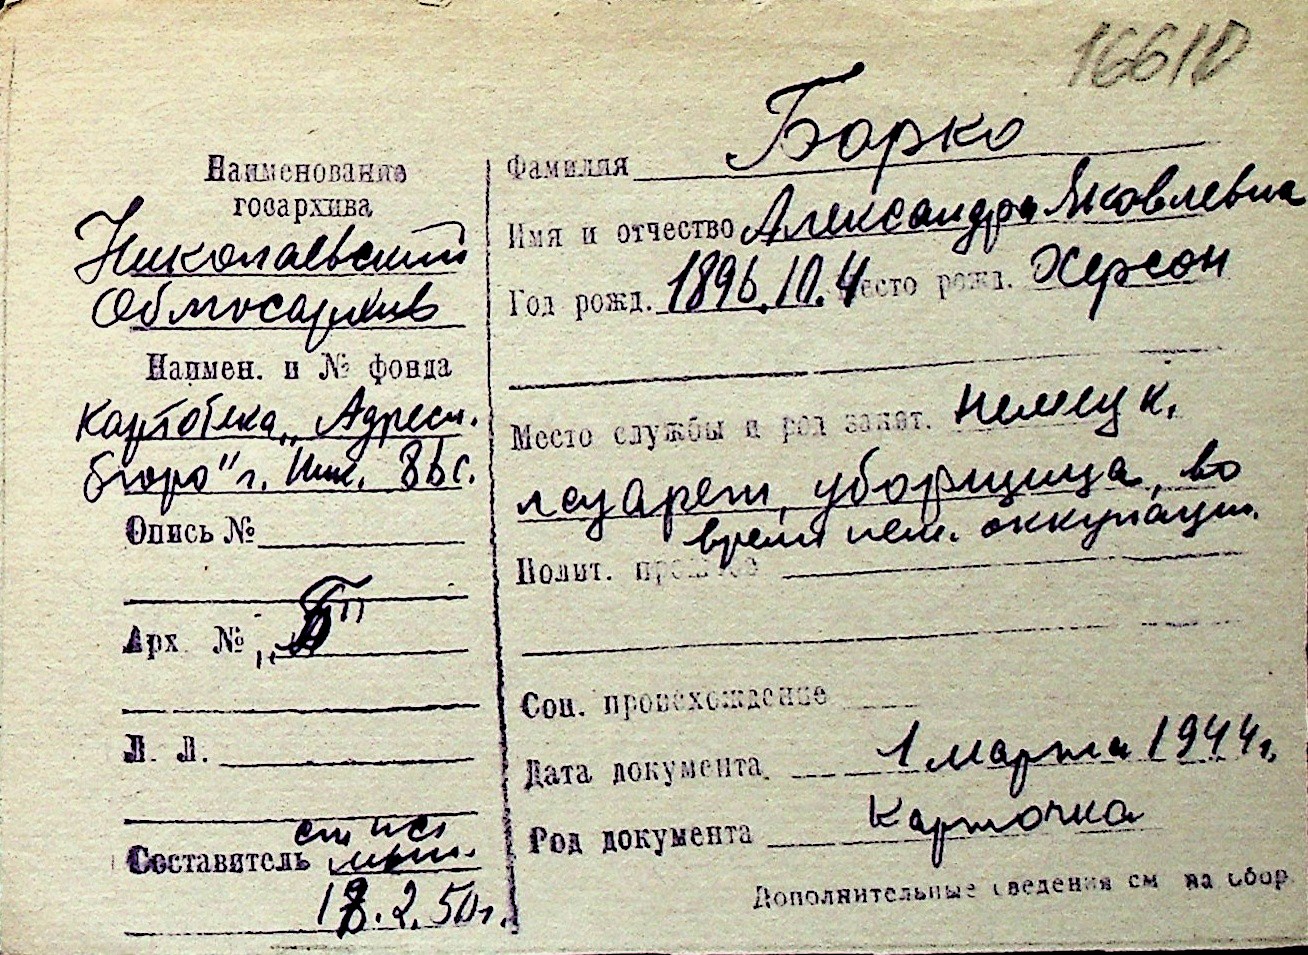 1661
Наименование
госархива
Николаевский
Облгосархив
Наимен. и № фонда
Картотека „Адресн.
бюро" г. Ник.
Опись №
Арх №
„Б"
Л. Л.
Составитель
18.2.50г.
Фамилия Борко
Имя и отчество Александра Яковлевна
Год рожд. 1896.10.4 Место рожд. Херсон
Место службы и род занят. Немецк.
лазарет, уборщица, во
время нем. оккупации.
Полит. прошлое
Соц. происхождение
Дата документа 1 марта 1944г.
Род документа Карточка
Дополнительные сведения см на обор